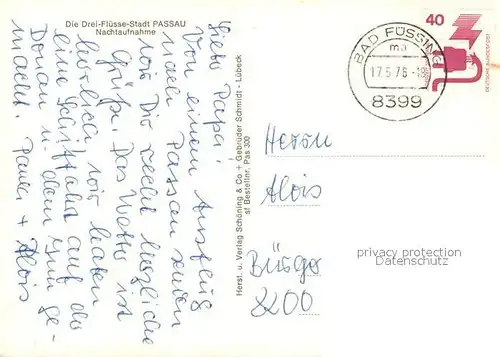 Die Drei-Flüsse-Stadt PASSAU
Nachtaufnahme
Lieber Papa!
Von einem Ausflug
nach Passau senden
wir Dir recht herzliche
Grüße. Das Wetter ist
herrlich, wir haben
eine Schiffahrt auf der
Donau u. dem Inn ge-
macht. Paula + Alois
Herst. u. Verlag Schöning & Co + Gebrüder Schmidt - Lübeck
sf Bestellnr. Pas 300
BAD FÜSSING
ma
17.5.76-18
8399
40
DEUTSCHE BUNDESPOST
Herrn
Alois
Bürger
8200
privacy protection
Datenschutz